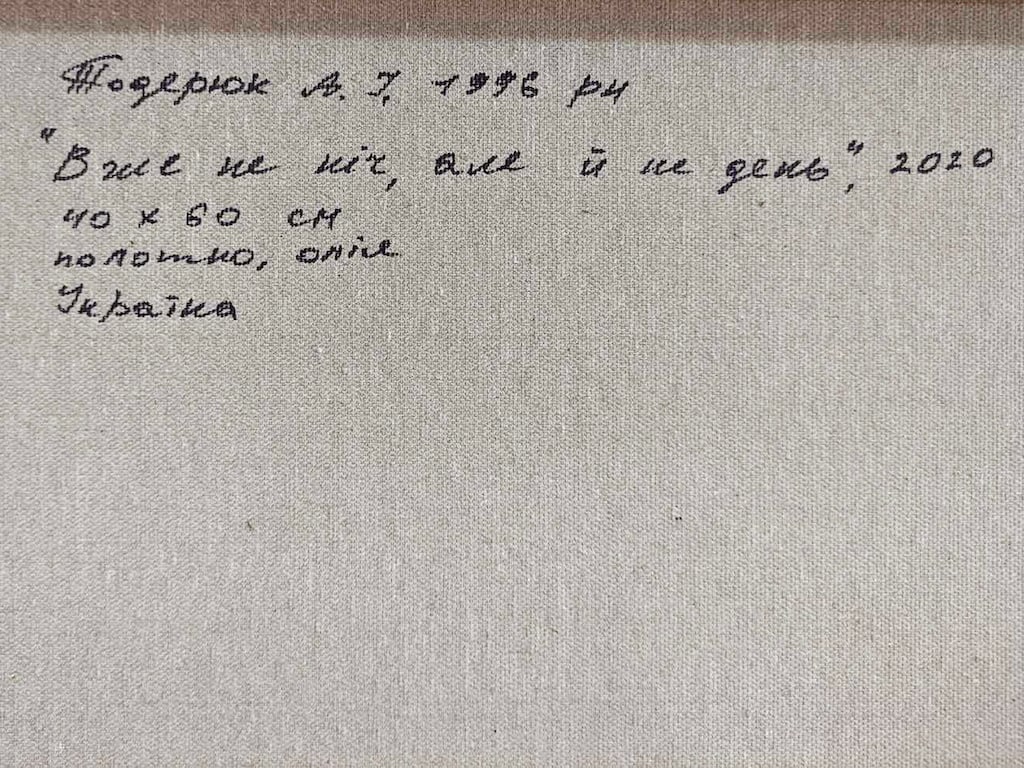 Тодерюк А. І. 1996 рн
"Вже не ніч, але й не день", 2020
40 х 60 см
полотно, олія
Українa